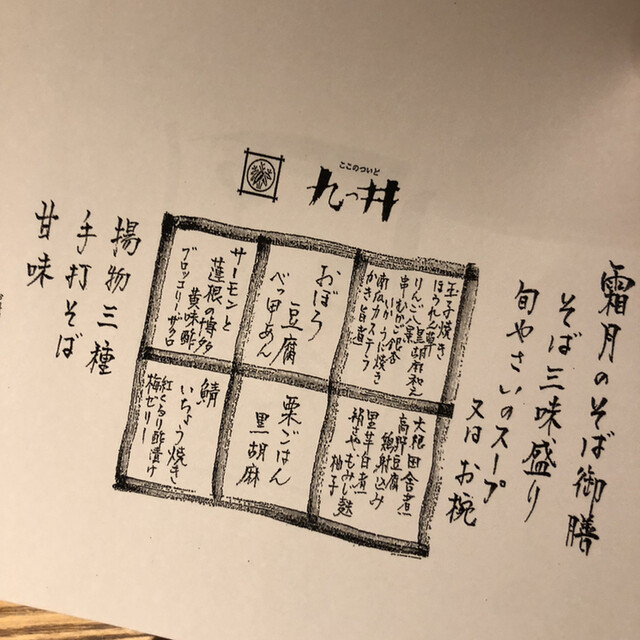 ここのついど
九つ井
霜月のそば御膳
そば三味盛り
旬やさいのスープ
又はお椀
玉子焼き
ほうれん草黒胡麻和え
りんご八景
串むかご銀杏
いかうに焼き
南瓜カステラ
かき旨煮
おぼろ
豆腐
べっ甲あん
サーモンと
蓮根の博多
黄味酢
ブロッコリーザクロ
大根田舎煮
高野豆腐
鶏射込み
里芋白煮
絹さやもみじ麩
柚子
栗ごはん
黒胡麻
鯖
いちょう焼き
紅くるり酢漬け
梅ゼリー
揚物三種
手打そば
甘味